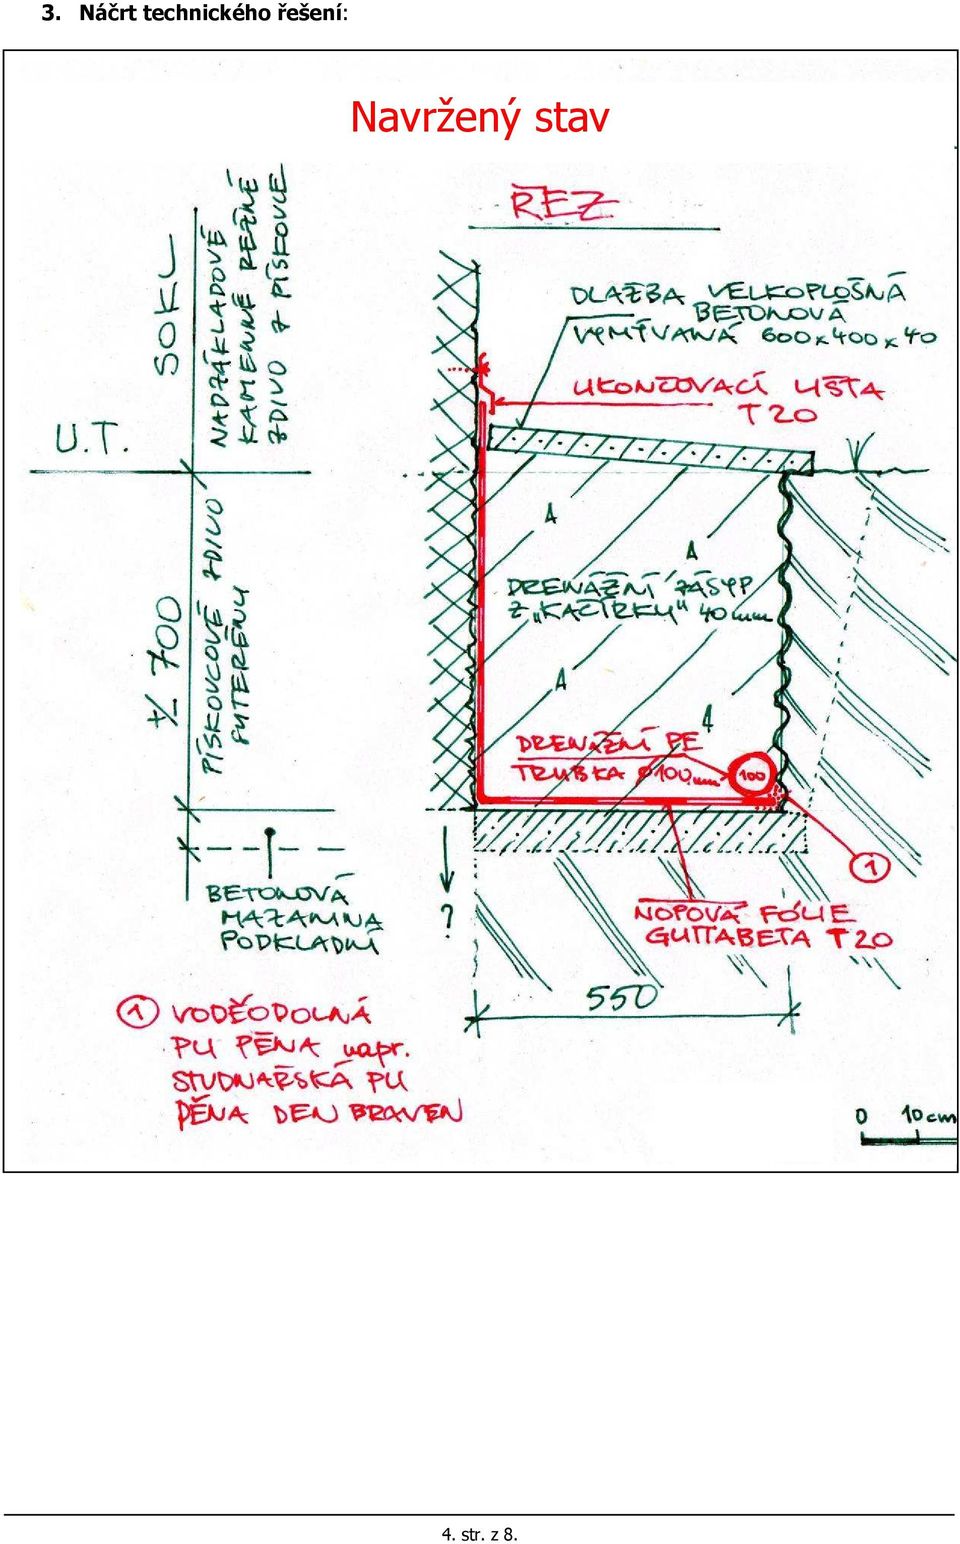 3. Náčrt technického řešení:
Navržený stav
ŘEZ
SOKL
NADZÁKLADOVÉ
KAMENNÉ REŽNÉ
ZDIVO Z PÍSKOVCE
DLAŽBA VELKOPLOŠNÁ
BETONOVÁ
VYMÝVANÁ 600x400x40
UKONČOVACÍ LIŠTA
T20
U.T.
+/- 700
PÍSKOVCOVÉ ZDIVO
SUTERÉNU
A
A
DRENÁŽNÍ ZÁSYP
Z „KAČÍRKU" 40mm
A
A
DRENÁŽNÍ PE
TRUBKA Ø100mm
100
1
BETONOVÁ
MAZANINA
PODKLADNÍ
?
NOPOVÁ FÓLIE
GUTTABETA T20
550
1 VODĚODOLNÁ
PU PĚNA např.
STUDNAŘSKÁ PU
PĚNA DEN BRAVEN
0 10cm
4. str. z 8.